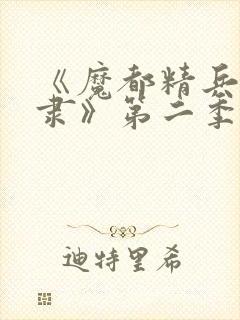 《魔都精兵
隶》第二季
迪特里希